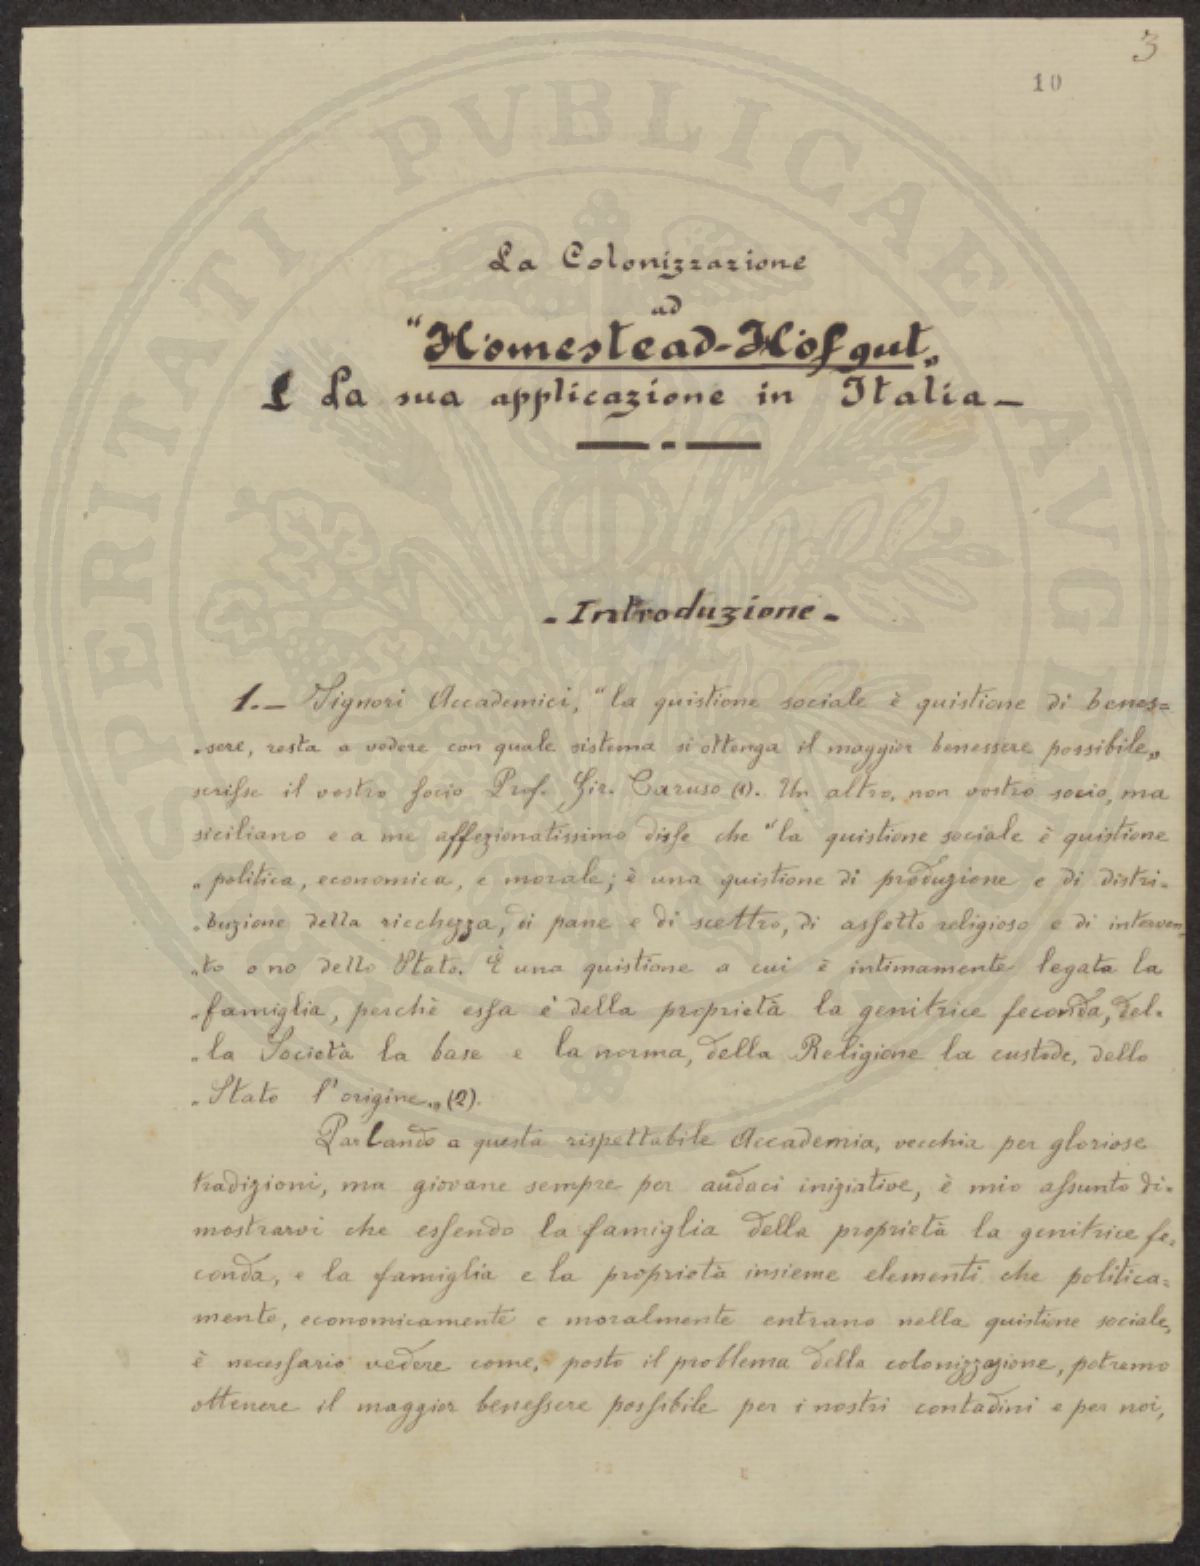 3
10
La Colonizzazione
ad
"Homestead-Höfgut„
E La sua applicazione in Italia_
- Introduzione -
1.— Signori Accademici, "la quistione sociale è quistione di benes=
„sere, resta a vedere con quale sistema si ottenga il maggior benessere possibile„
scrisse il vostro socio Prof. Gir. Caruso (1). Un altro, non vostro socio, ma
siciliano e a me affezionatissimo disse che "la quistione sociale è quistione
„politica, economica, e morale; è una quistione di produzione e di distri-
„buzione della ricchezza, di pane e di scettro, di assetto religioso e di interven-
„to o no dello Stato. È una quistione a cui è intimamente legata la
„famiglia, perchè essa è della proprietà la genitrice feconda, del-
„la Società la base e la norma, della Religione la custode, dello
„Stato l'origine„ (2).
Parlando a questa rispettabile Accademia, vecchia per gloriose
tradizioni, ma giovane sempre per audaci iniziative, è mio assunto di-
mostrarvi che essendo la famiglia della proprietà la genitrice fe-
conda, e la famiglia e la proprietà insieme elementi che politica=
mente, economicamente e moralmente entrano nella quistione sociale,
è necessario vedere come, posto il problema della colonizzazione, potremo
ottenere il maggior benessere possibile per i nostri contadini e per noi,
SPERITATI PVBLICAE AVGENDAE